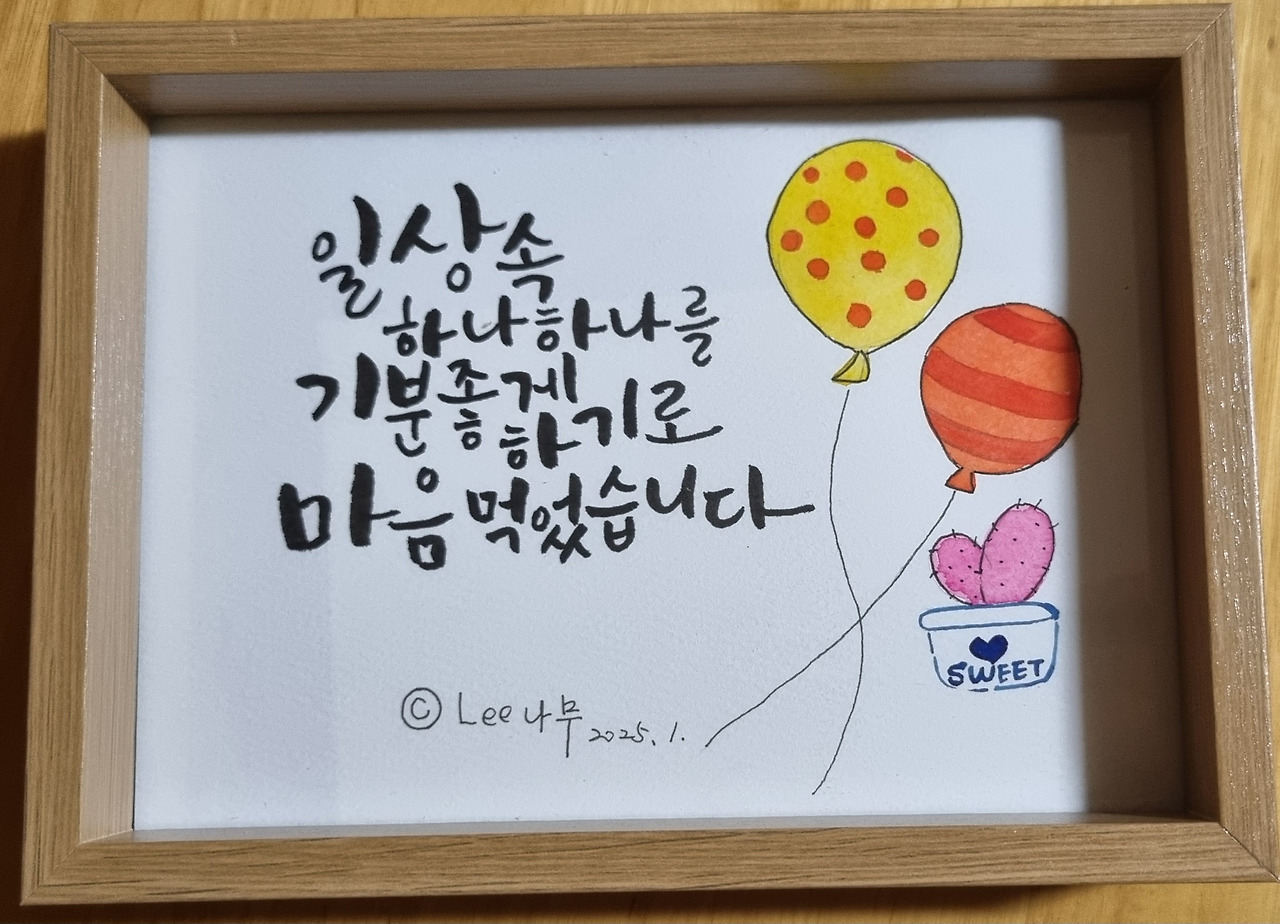 일상 속
하나하나를
기분 좋게 하기로
마음 먹었습니다
SWEET
© Lee나무 2025. 1.